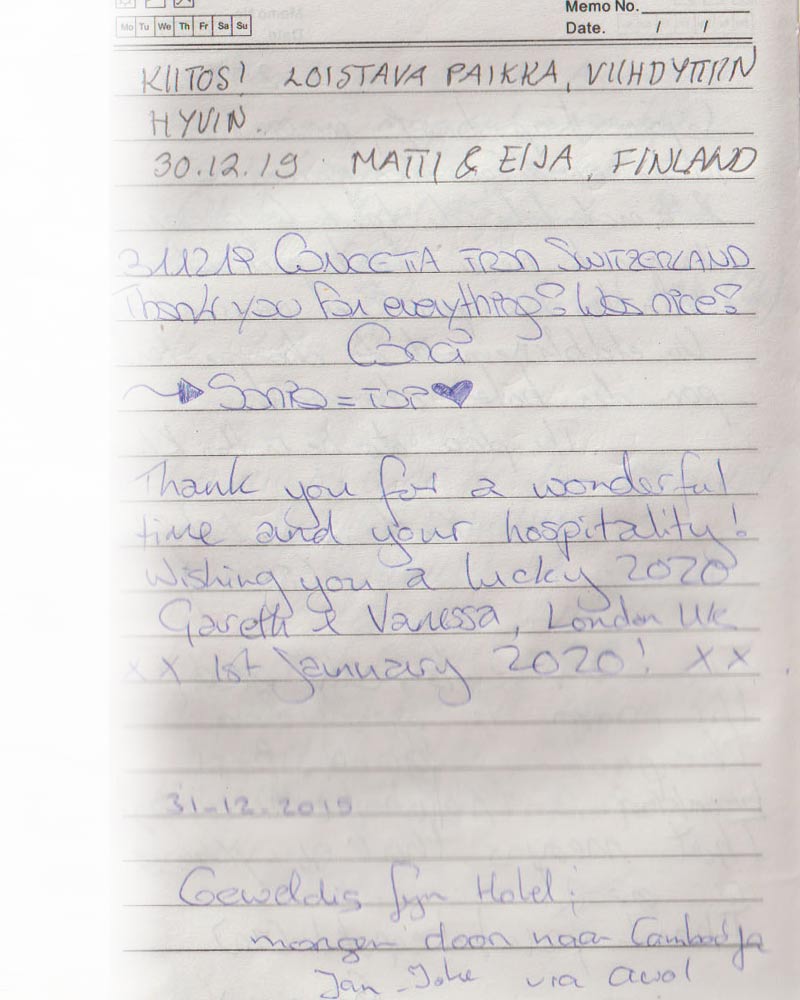 Memo No.
Mo Tu We Th Fr Sa Su
Date. / /
KIITOS! LOISTAVA PAIKKA, VIIHDYTTIIN
HYVIN.
30.12.19 MATTI & EIJA, FINLAND
311219 CONCETTA FROM SWITZERLAND
Thank you for everything! Was nice!
= TOP ♥
Thank you for a wonderful
time and your hospitality!
Wishing you a lucky 2020
Gareth & Vanessa, London UK
xx 1st January 2020! xx
31-12-2019
Geweldig fijn Hotel;
morgen door naar Cambodja
Jan - Joke via